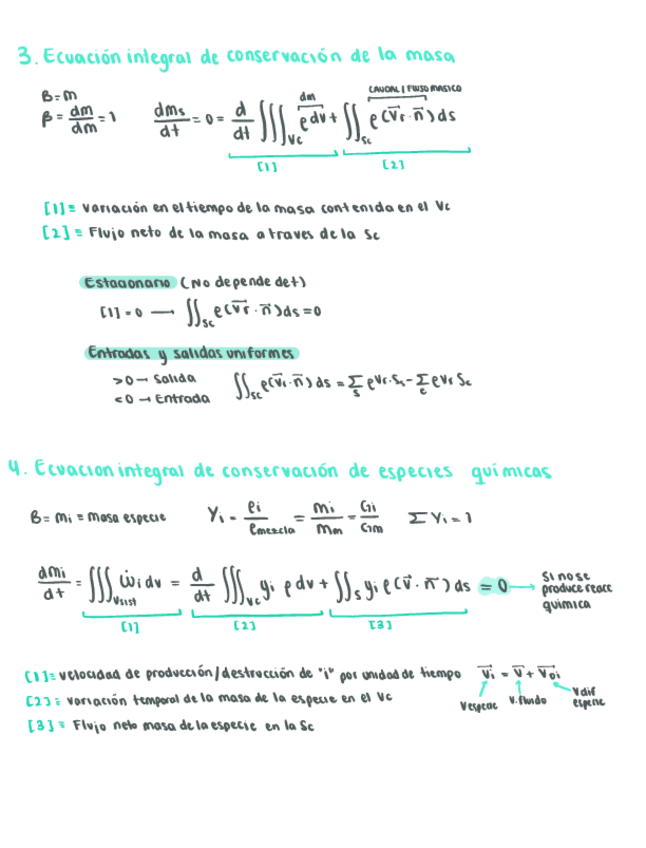 3. Ecuación integral de conservación de la masa
B=m
β = dm/dm = 1
dms/dt = 0 = d/dt ∭Vc ρdv + ∬Sc ρ(V⃗r · n⃗)ds
dm
CAUDAL | FLUJO MASICO
[1] [2]
[1]≡ variación en el tiempo de la masa contenida en el Vc
[2] ≡ Flujo neto de la masa a traves de la Sc
Estacionario (No depende de t)
[1] = 0 → ∬Sc ρ(V⃗r · n⃗)ds = 0
Entradas y salidas uniformes
>0 → Salida
<0 → Entrada
∬Sc ρ(V⃗r · n⃗) ds = Σs ρVr·Ss - Σe ρVr Se
4. Ecuacion integral de conservación de especies químicas
B = mi ≡ masa especie
Yi = ρi/ρmezcla = mi/mm = Gi/Gm
Σ Yi = 1
dmi/dt = ∭Vsist ẇi dv = d/dt ∭Vc yi ρ dv + ∬S yi ρ(V⃗ · n⃗) ds = 0 →
Si no se
produce reacc
quimica
[1] [2] [3]
[1]≡ velocidad de producción/destrucción de "i" por unidad de tiempo
V⃗i = V⃗ + V⃗Di
Vespecie
V. fluido
Vdif
especie
[2]≡ variación temporal de la masa de la especie en el Vc
[3] ≡ Flujo neto masa de la especie en la Sc